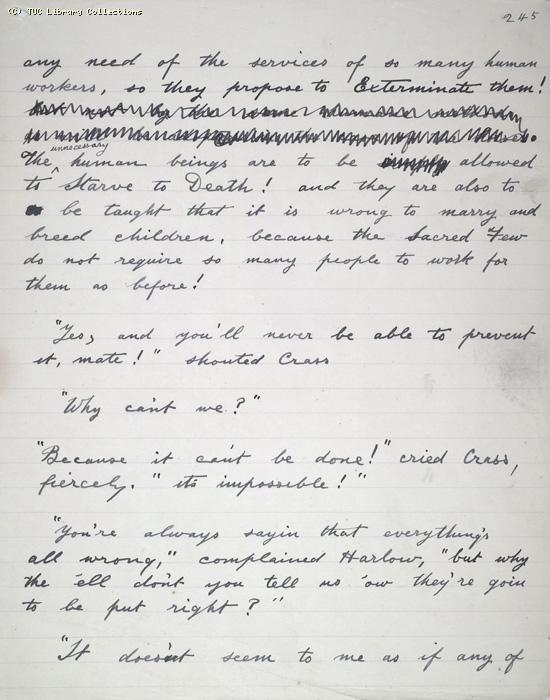 (C) TUC Library Collections
245
any need of the services of so many human
workers, so they propose to Exterminate them!
unnecessary
The human beings are to be allowed
to Starve to Death! and they are also to
be taught that it is wrong to marry and
breed children, because the Sacred Few
do not require so many people to work for
them as before!
"Yes, and you'll never be able to prevent
it, mate!" shouted Crass
"Why can't we?"
"Because it can't be done!" cried Crass,
fiercely. "it's impossible!"
"You're always sayin that everything's
all wrong," complained Harlow, "but why
the 'ell don't you tell us 'ow they're goin
to be put right?"
"It doesn't seem to me as if any of